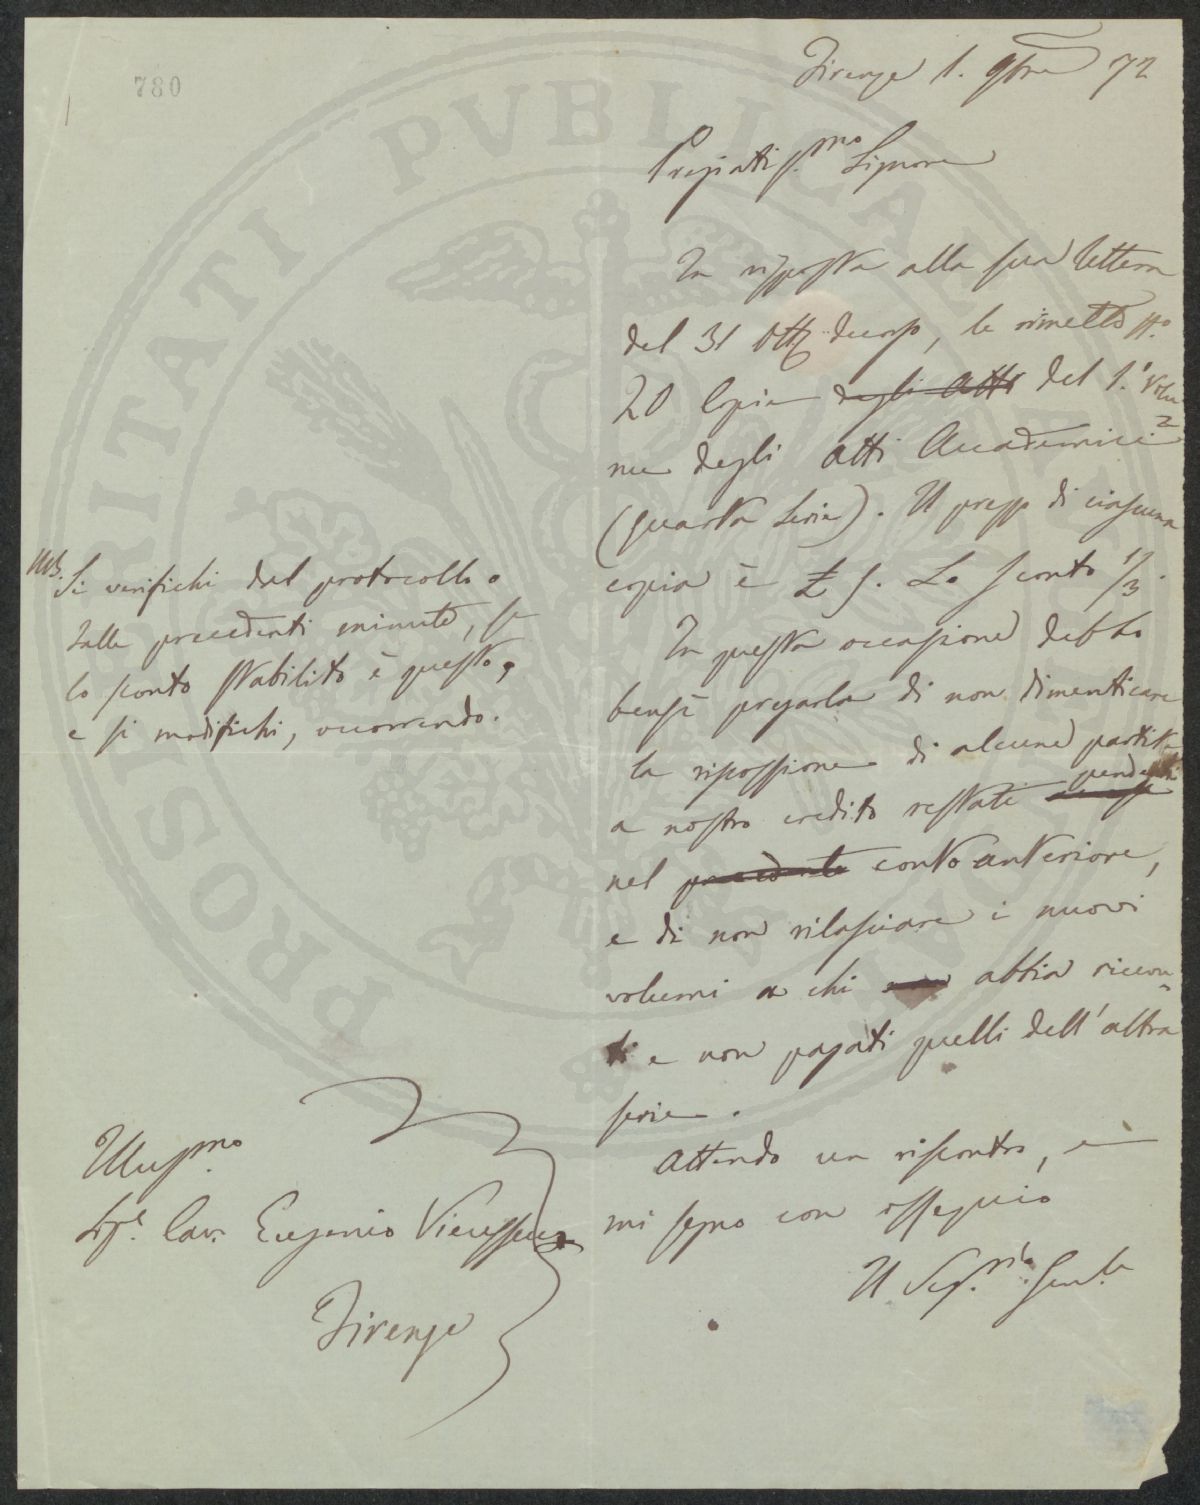 780
Firenze 1. 9bre 72
Pregiatiss.mo Signore
In risposta alla sua lettera
del 31 Ottb decorso, le rimetto N.o
20 Copie degli Atti del 1.o Volu
me degli Atti Accademici
(quarta Serie). Il prezzo di ciascuna
copia è £ 5. Lo sconto 1/3.
In questa occasione debbo
bensì pregarla di non dimenticare
la riscossione di alcune partite
a nostro credito restate pendenti
nel precedente conto anteriore,
e di non rilasciare i nuovi
volumi a chi non abbia ricevu=
ti e non pagati quelli dell'altra
serie.
Attendo un riscontro, e
mi segno con ossequio
Il Seg.rio Gen.le
NB. Si verifichi dal protocollo o
dalle precedenti minute, se
lo sconto stabilito è questo,
e si modifichi, occorrendo.
Illus.mo
Sig.e Cav. Eugenio Vieusseux
Firenze
PROSPERITATI PVBLICAE AVGENDAE